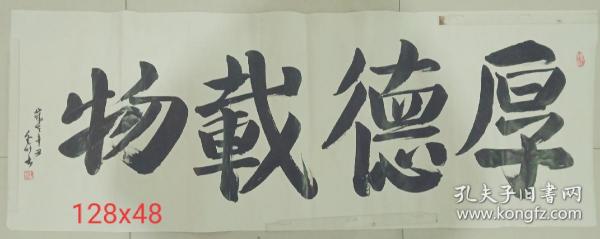 厚德載物
128x48
孔夫子旧书网
www.kongfz.com